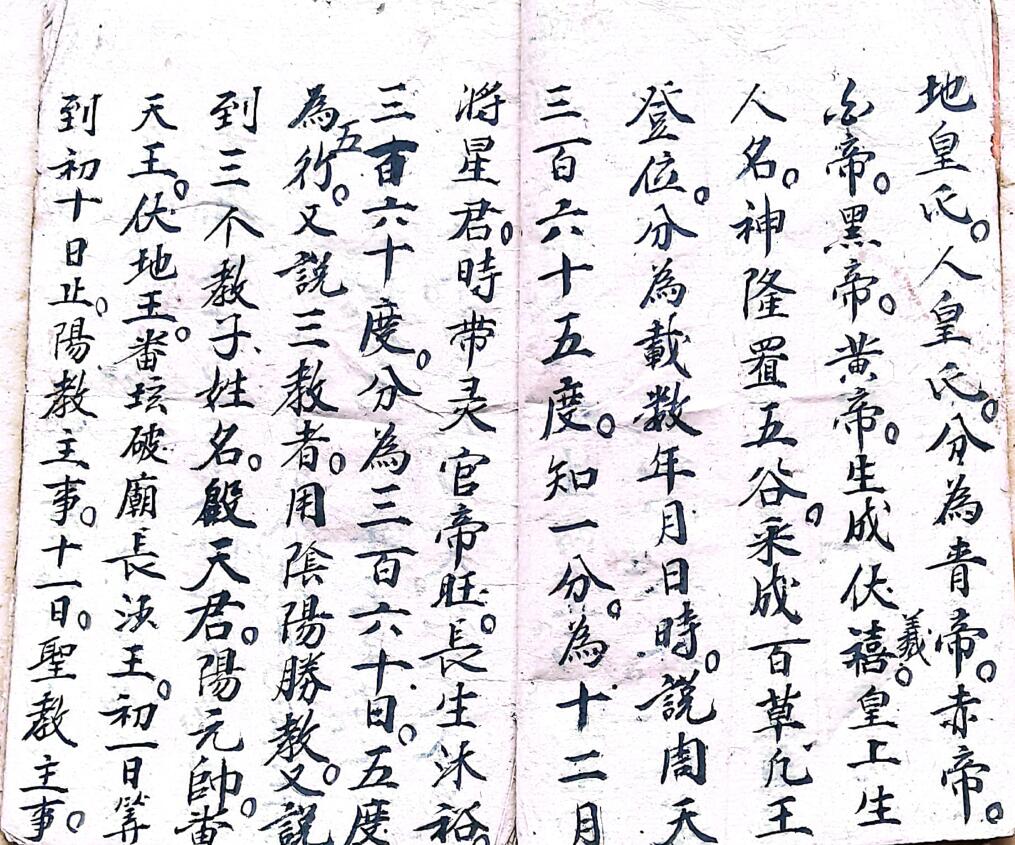 地皇氏。人皇氏。分為青帝。赤帝。
白帝。黑帝。黃帝。生成伏禧羲。皇上生
人名。神隆置五谷。采成百草凡王
登位。分為載数年月日時。説周天
三百六十五度。知一分。為十二月
將星君。時带灵官帝旺。長生沐裕。
三百六十度。分為三百六十日。五度
為五行。又説三教者。用陰陽勝教。又説
到三个教子姓名。殷天君。陽元帥。畨
天王。伏地王。畨坛破廟長須王。初一日筭
到初十日止。陽教主事。十一日。聖教主事。